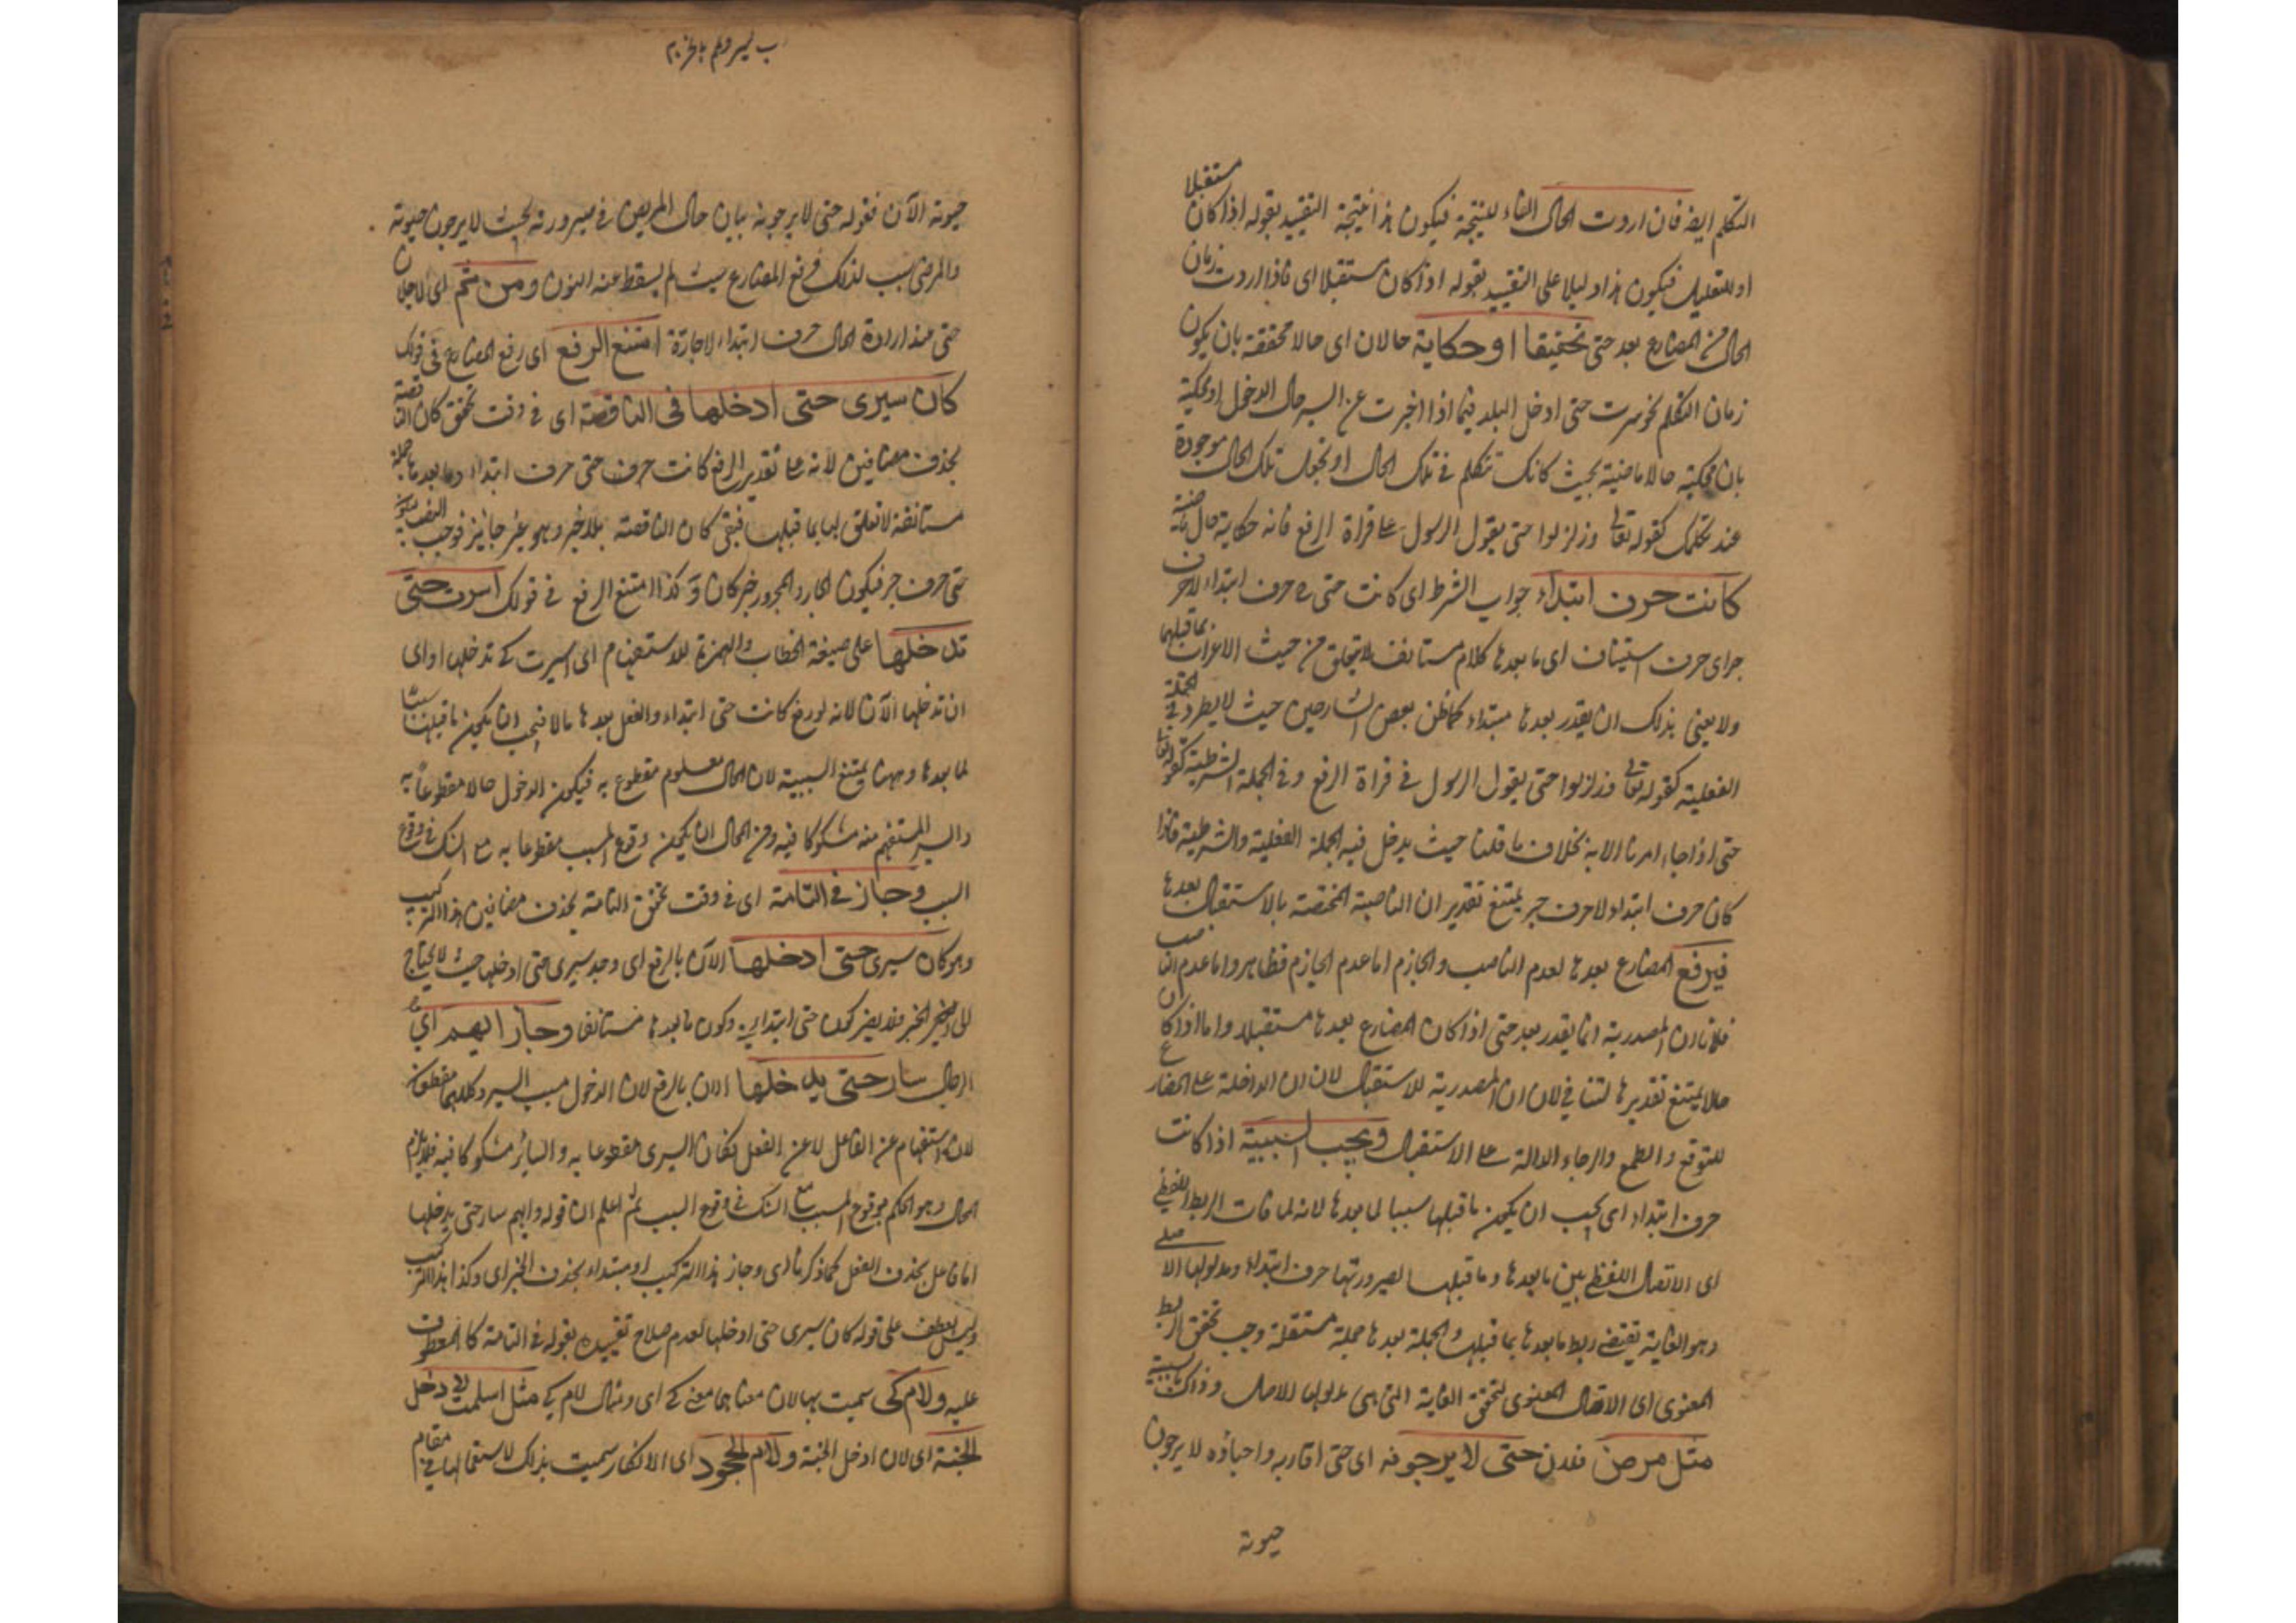 التكلم ايضا فان اردت الحال الفاء للنتيجة فيكون هذا نتيجة التقييد بقوله اذا كان مستقبلا
او للتعليل فيكون هذا دليلا على التقييد بقوله اذا كان مستقبلا اى فاذا اردت زمان
الحال من المضارع بعد حتى تحقيقا او حكاية حالان اى حالا محققة بان يكون
زمان التكلم نحو سرت حتى ادخل البلد فيما اذا اخبرت عن السير حال الدخول او محكية
بان محكية حالا ماضية بحيث كانك تتكلم فى تلك الحال او تجعل تلك الحال موجودة
عند تكلمك كقوله تعالى وزلزلوا حتى يقول الرسول على قراة الرفع فانه حكاية حال ماضية
كانت حرف ابتداء جواب الشرط اى كانت حتى ح حرف ابتداء لا حرف
جر اى حرف استيناف اى ما بعدها كلام مستانف لا يتعلق من حيث الاعراب بما قبلها
ولا يعنى بذلك ان يقدر بعدها مبتداء كما ظن بعض الشارحين حيث لا يطرد فى الجملة
الفعلية كقوله تعالى وزلزلوا حتى يقول الرسول فى قراة الرفع وفى الجملة الشرطية كقوله تعالى
حتى اذا جاء امرنا الاية بخلاف ما قلنا حيث يدخل فيه الجملة الفعلية والشرطية فاذا
كان حرف ابتداء لا حرف جر يمتنع تقدير ان الناصبة المختصة بالاستقبال بعدها
فيرفع المضارع بعدها لعدم الناصب والجازم اما عدم الجازم فظاهر واما عدم الناصب
فلان ان المصدرية انما يقدر بعد حتى اذا كان المضارع بعدها مستقبلا واما اذا كان
حالا يمتنع تقديرها لتنافى لان ان المصدرية للاستقبال لان ان الداخلة على المضارع
للتوقع والطمع والرجاء الدالة على الاستقبال ويجب السببية اذا كانت
حرف ابتداء اى يجب ان يكون ما قبلها سببا لما بعدها لانه لما فات الربط اللفظى
اى الاتصال اللفظى بين ما بعدها وما قبلها لصيرورتها حرف ابتداء ومدلولها الاصلى
وهو الغاية يقتضى ربط ما بعدها بما قبلها والجملة بعدها جملة مستقلة وجب تحقق الربط
المعنوى اى الاتصال المعنوى لتحقق الغاية التى هى مدلولها الاصل وذلك بالسببية
مثل مرض فلان حتى لا يرجونه اى حتى اقاربه واحباؤه لا يرجون
حيوته
حيوته الآن فقوله حتى لا يرجونه بيان حال المريض فى صيرورته بحيث لا يرجون حيوته
والمرض سبب لذلك فرفع المضارع حيث لم يسقط عنه النون ومن ثم اى لاجل ان
حتى عند ارادة الحال حرف ابتداء لا جارة امتنع الرفع اى رفع المضارع فى قولك
كان سيرى حتى ادخلها فى الناقصة اى فى وقت تحقق كان الناقصة
بحذف مضافين لانه على تقدير الرفع كانت حرف حتى حرف ابتداء وما بعدها جملة
مستانفة لا تعلق لها بما قبلها فبقى كان الناقصة بلا خبر وهو غير جائز فوجب النصب
حتى حرف جر فيكون الجار والمجرور خبر كان وكذا امتنع الرفع فى قولك اسرت حتى
تدخلها على صيغة الخطاب والهمزة للاستفهام اى اسرت كى تدخلها او اى
ان تدخلها الآن لانه لو رفع كانت حتى ابتداء والفعل بعدها حالا فيجب ان يكون ما قبلها سببا
لما بعدها وههنا يمتنع السببية لان الحال معلوم مقطوع به فيكون الدخول حالا مقطوعا به
والسير المستفهم منه مشكوكا فيه ومن المحال ان يكون وقوع المسبب مقطوعا به مع الشك فى وقوع
السبب وجاز فى التامة اى فى وقت تحقق التامة بحذف مضافين هذا التركيب
وهو كان سيرى حتى ادخلها الآن بالرفع اى وجد سيرى حتى ادخلها حيث لا يحتاج
الى الخبر فلا يضر كون حتى ابتدائية وكون ما بعدها مستانفا وجاز ايهم اى
الرجال سار حتى يدخلها الان بالرفع لان الدخول مسبب السير وكلاهما مقطوعان
لان استفهام عن الفاعل لا عن الفعل فكان السير مقطوعا به والسائر مشكوكا فيه فلا يلزم
المحال وهو الحكم بوقوع المسبب مع الشك فى وقوع السبب ثم اعلم ان قوله وايهم سار حتى يدخلها
اما فاعل بحذف الفعل كما ذكرنا اى وجاز هذا التركيب او مبتداء بحذف الخبر اى وكذا هذا التركيب
وليس بعطف على قوله كان سيرى حتى ادخلها لعدم صلاح تقييده بقوله فى التامة كالمعطوف
عليه ولام كى سميت بها لان معناها معنى كى اى ومثال لام كى مثل اسلمت لادخل
الجنة اى لان ادخل الجنة ولام الجحود اى الانكار سميت بذلك لاستعمالها فى مقام